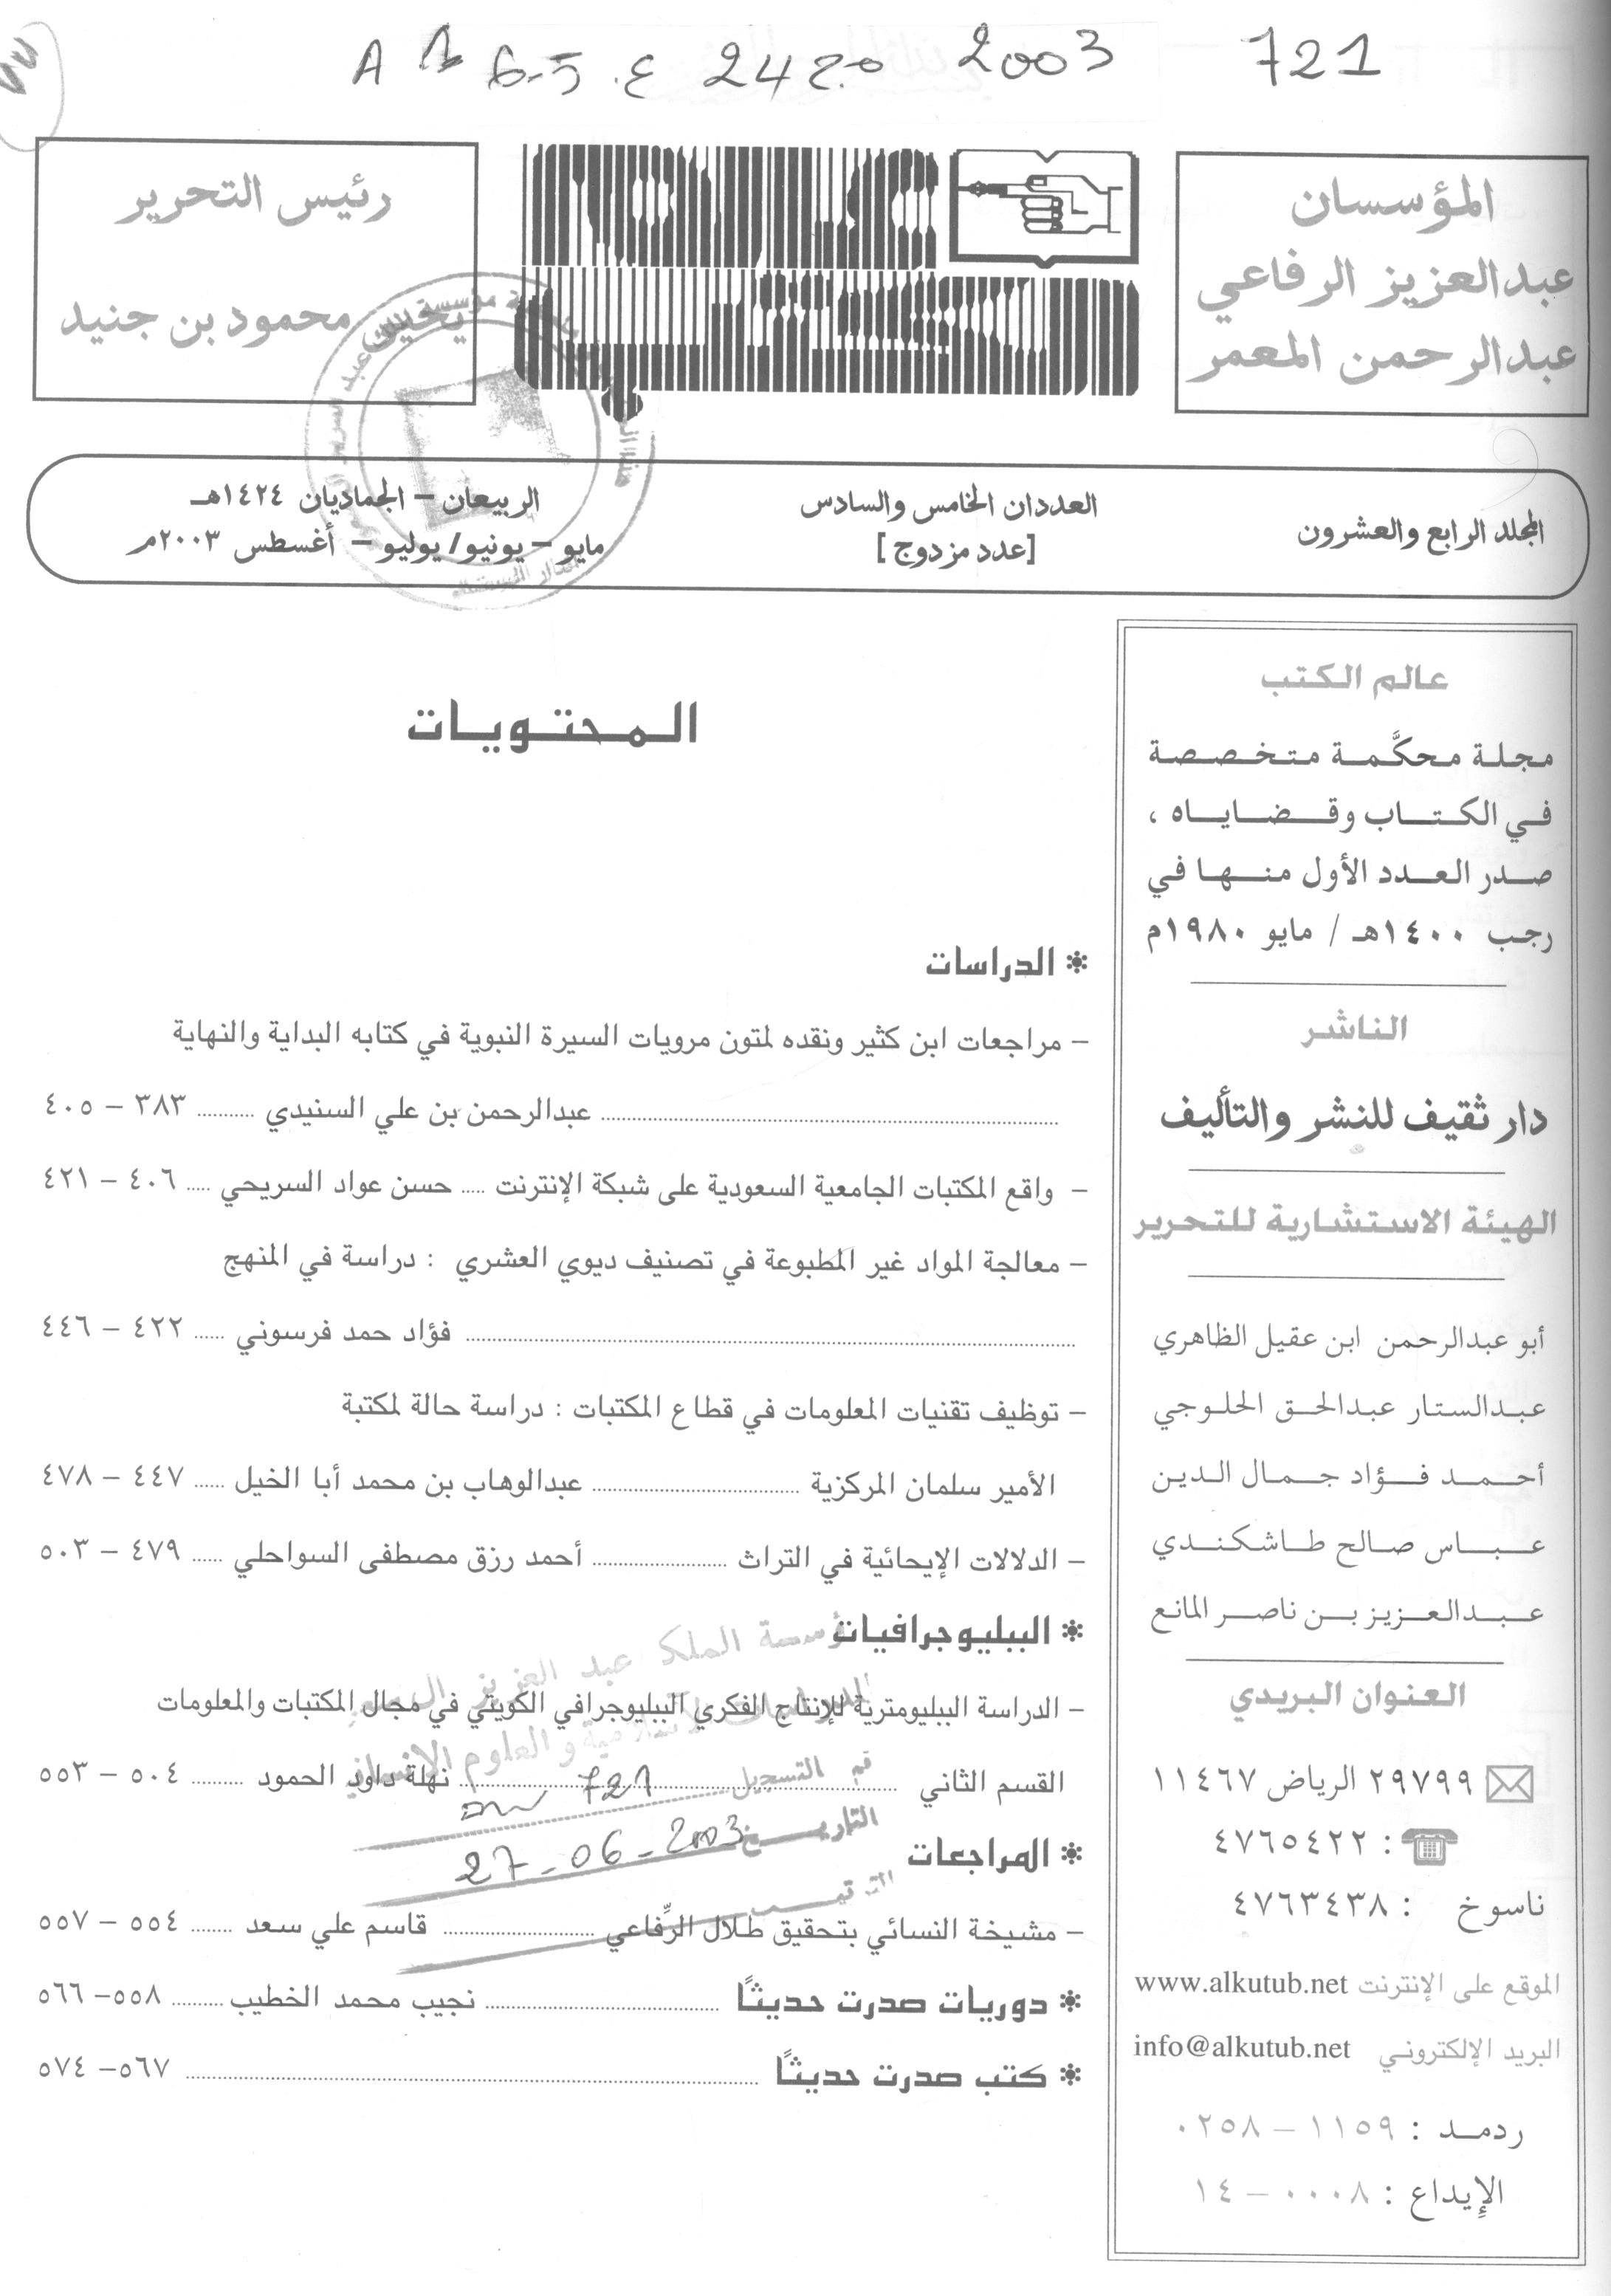 721 2003 ج 24 ع 5-6 A
المؤسسان
عبدالعزيز الرفاعي
عبدالرحمن المعمر
رئيس التحرير
يحيى محمود بن جنيد
المجلد الرابع والعشرون
العددان الخامس والسادس
[عدد مزدوج]
الربيعان – الجماديان ١٤٢٤هـ
مايو – يونيو/ يوليو – أغسطس ٢٠٠٣م
عالم الكتب
مجلة محكَّمة متخصصة
في الكتاب وقضاياه ،
صدر العدد الأول منها في
رجب ١٤٠٠هـ / مايو ١٩٨٠م
الناشر
دار ثقيف للنشر والتأليف
الهيئة الاستشارية للتحرير
أبو عبدالرحمن ابن عقيل الظاهري
عبدالستار عبدالحق الحلوجي
أحمد فؤاد جمال الدين
عباس صالح طاشكندي
عبدالعزيز بن ناصر المانع
العنوان البريدي
٢٩٧٩٩ الرياض ١١٤٦٧
: ٤٧٦٥٤٢٢
ناسوخ : ٤٧٦٣٤٣٨
الموقع على الإنترنت www.alkutub.net
البريد الإلكتروني info@alkutub.net
ردمد : ١١٥٩ – ٠٢٥٨
الإيداع : ٠٠٠٨ – ١٤
المحتويات
* الدراسات
– مراجعات ابن كثير ونقده لمتون مرويات السيرة النبوية في كتابه البداية والنهاية
عبدالرحمن بن علي السنيدي ٣٨٣ – ٤٠٥
– واقع المكتبات الجامعية السعودية على شبكة الإنترنت ..... حسن عواد السريحي ..... ٤٠٦ – ٤٢١
– معالجة المواد غير المطبوعة في تصنيف ديوي العشري : دراسة في المنهج
فؤاد حمد فرسوني ...... ٤٢٢ – ٤٤٦
– توظيف تقنيات المعلومات في قطاع المكتبات : دراسة حالة لمكتبة
الأمير سلمان المركزية ..... عبدالوهاب بن محمد أبا الخيل ...... ٤٤٧ – ٤٧٨
– الدلالات الإيحائية في التراث ..... أحمد رزق مصطفى السواحلي ...... ٤٧٩ – ٥٠٣
* الببليوجرافيات
– الدراسة الببليومترية للإنتاج الفكري الببليوجرافي الكويتي في مجال المكتبات والمعلومات
القسم الثاني ..... نهلة داود الحمود ..... ٥٠٤ – ٥٥٣
* المراجعات
– مشيخة النسائي بتحقيق طلال الرِّفاعي ..... قاسم علي سعد ..... ٥٥٤ – ٥٥٧
* دوريات صدرت حديثًا ..... نجيب محمد الخطيب ..... ٥٥٨– ٥٦٦
* كتب صدرت حديثًا ..... ٥٦٧– ٥٧٤
مؤسسة الملك عبد العزيز
والعلوم الإنسانية
التسجيل 721
التاريخ 27-06-2003